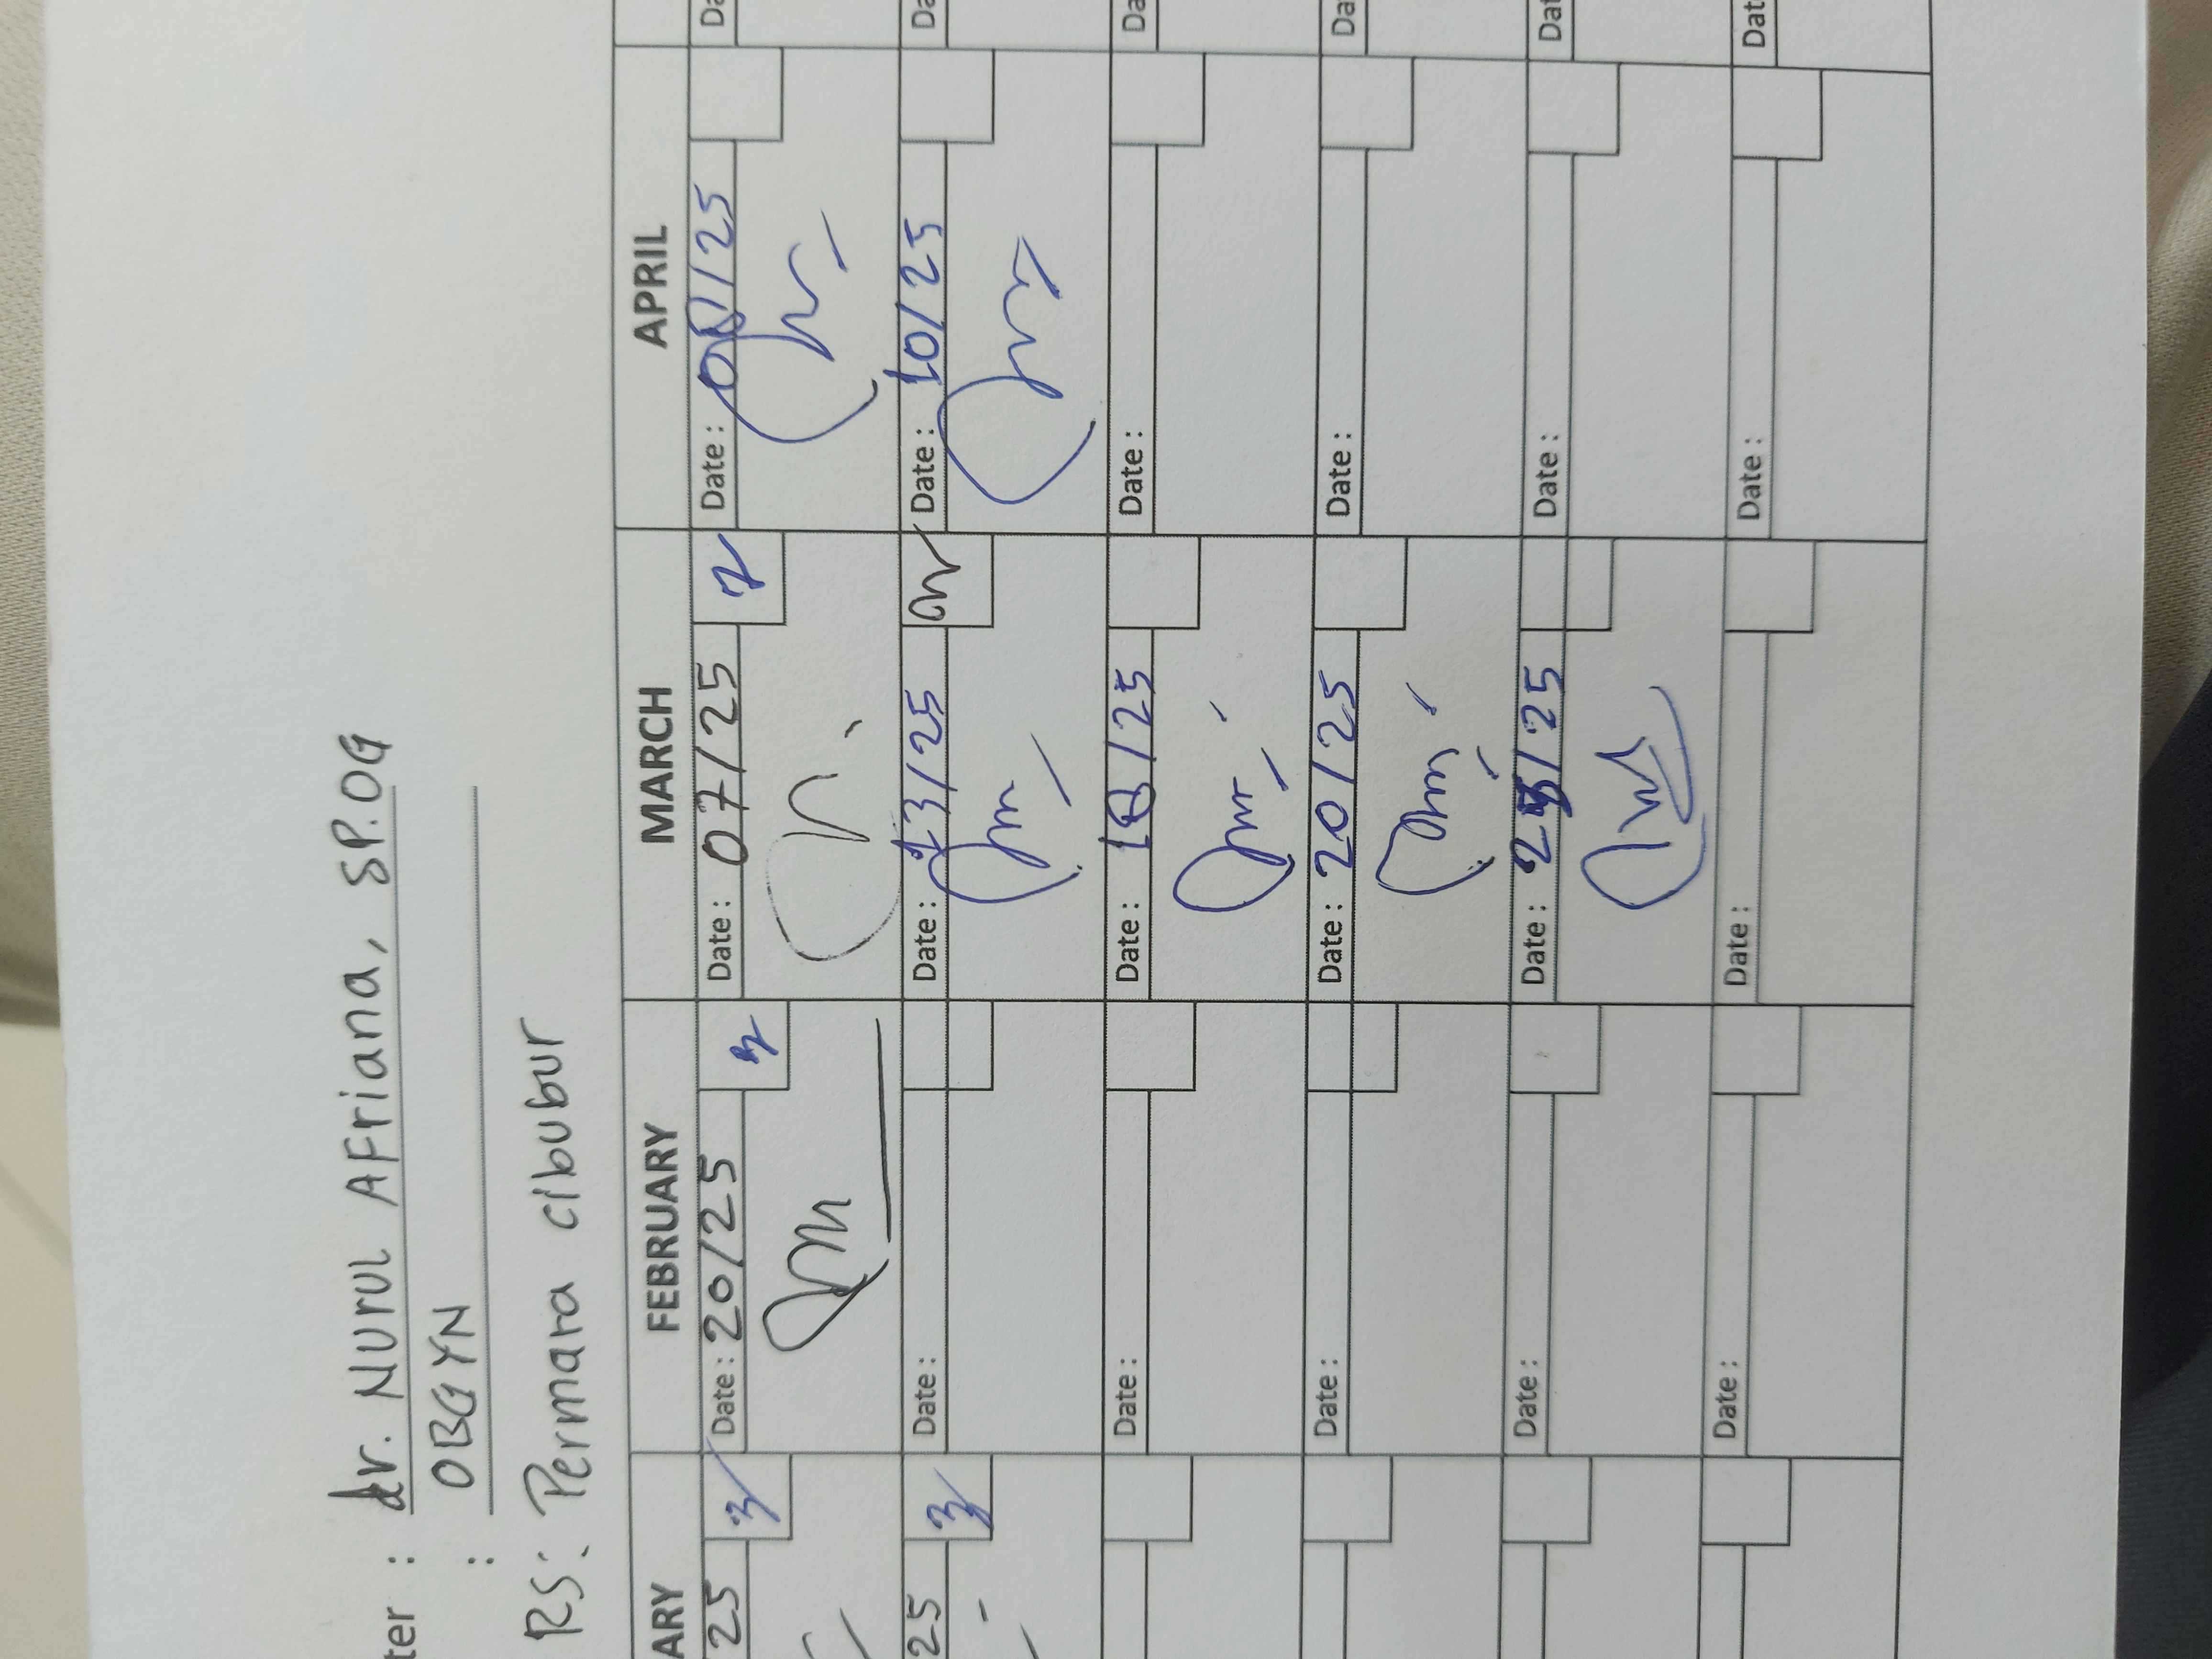 ter : dr. Nurul Afriana, SP.OG
: OBGYN
RS: Permata cibubur
ARY FEBRUARY MARCH APRIL
25 Date : 20/25 Date : 07/25 Date : /25 Da
25 Date : Date : 13/25 Date : 10/25 Da
Date : Date : /25 Date : Da
Date : Date : 20/25 Date : Da
Date : Date : /25 Date : Dat
Date : Date : Date : Dat